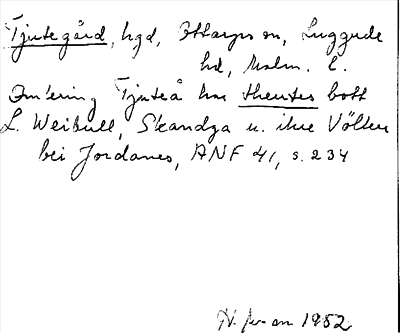 Tjutegård, hgd, Ottarps sn, Luggude
hd, Malm. l.
Omkring Tjuteå har theutes bott
L. Weibull, Skandza u. ihre Völker
bei Jordanes, ANF 41, s. 234
1952